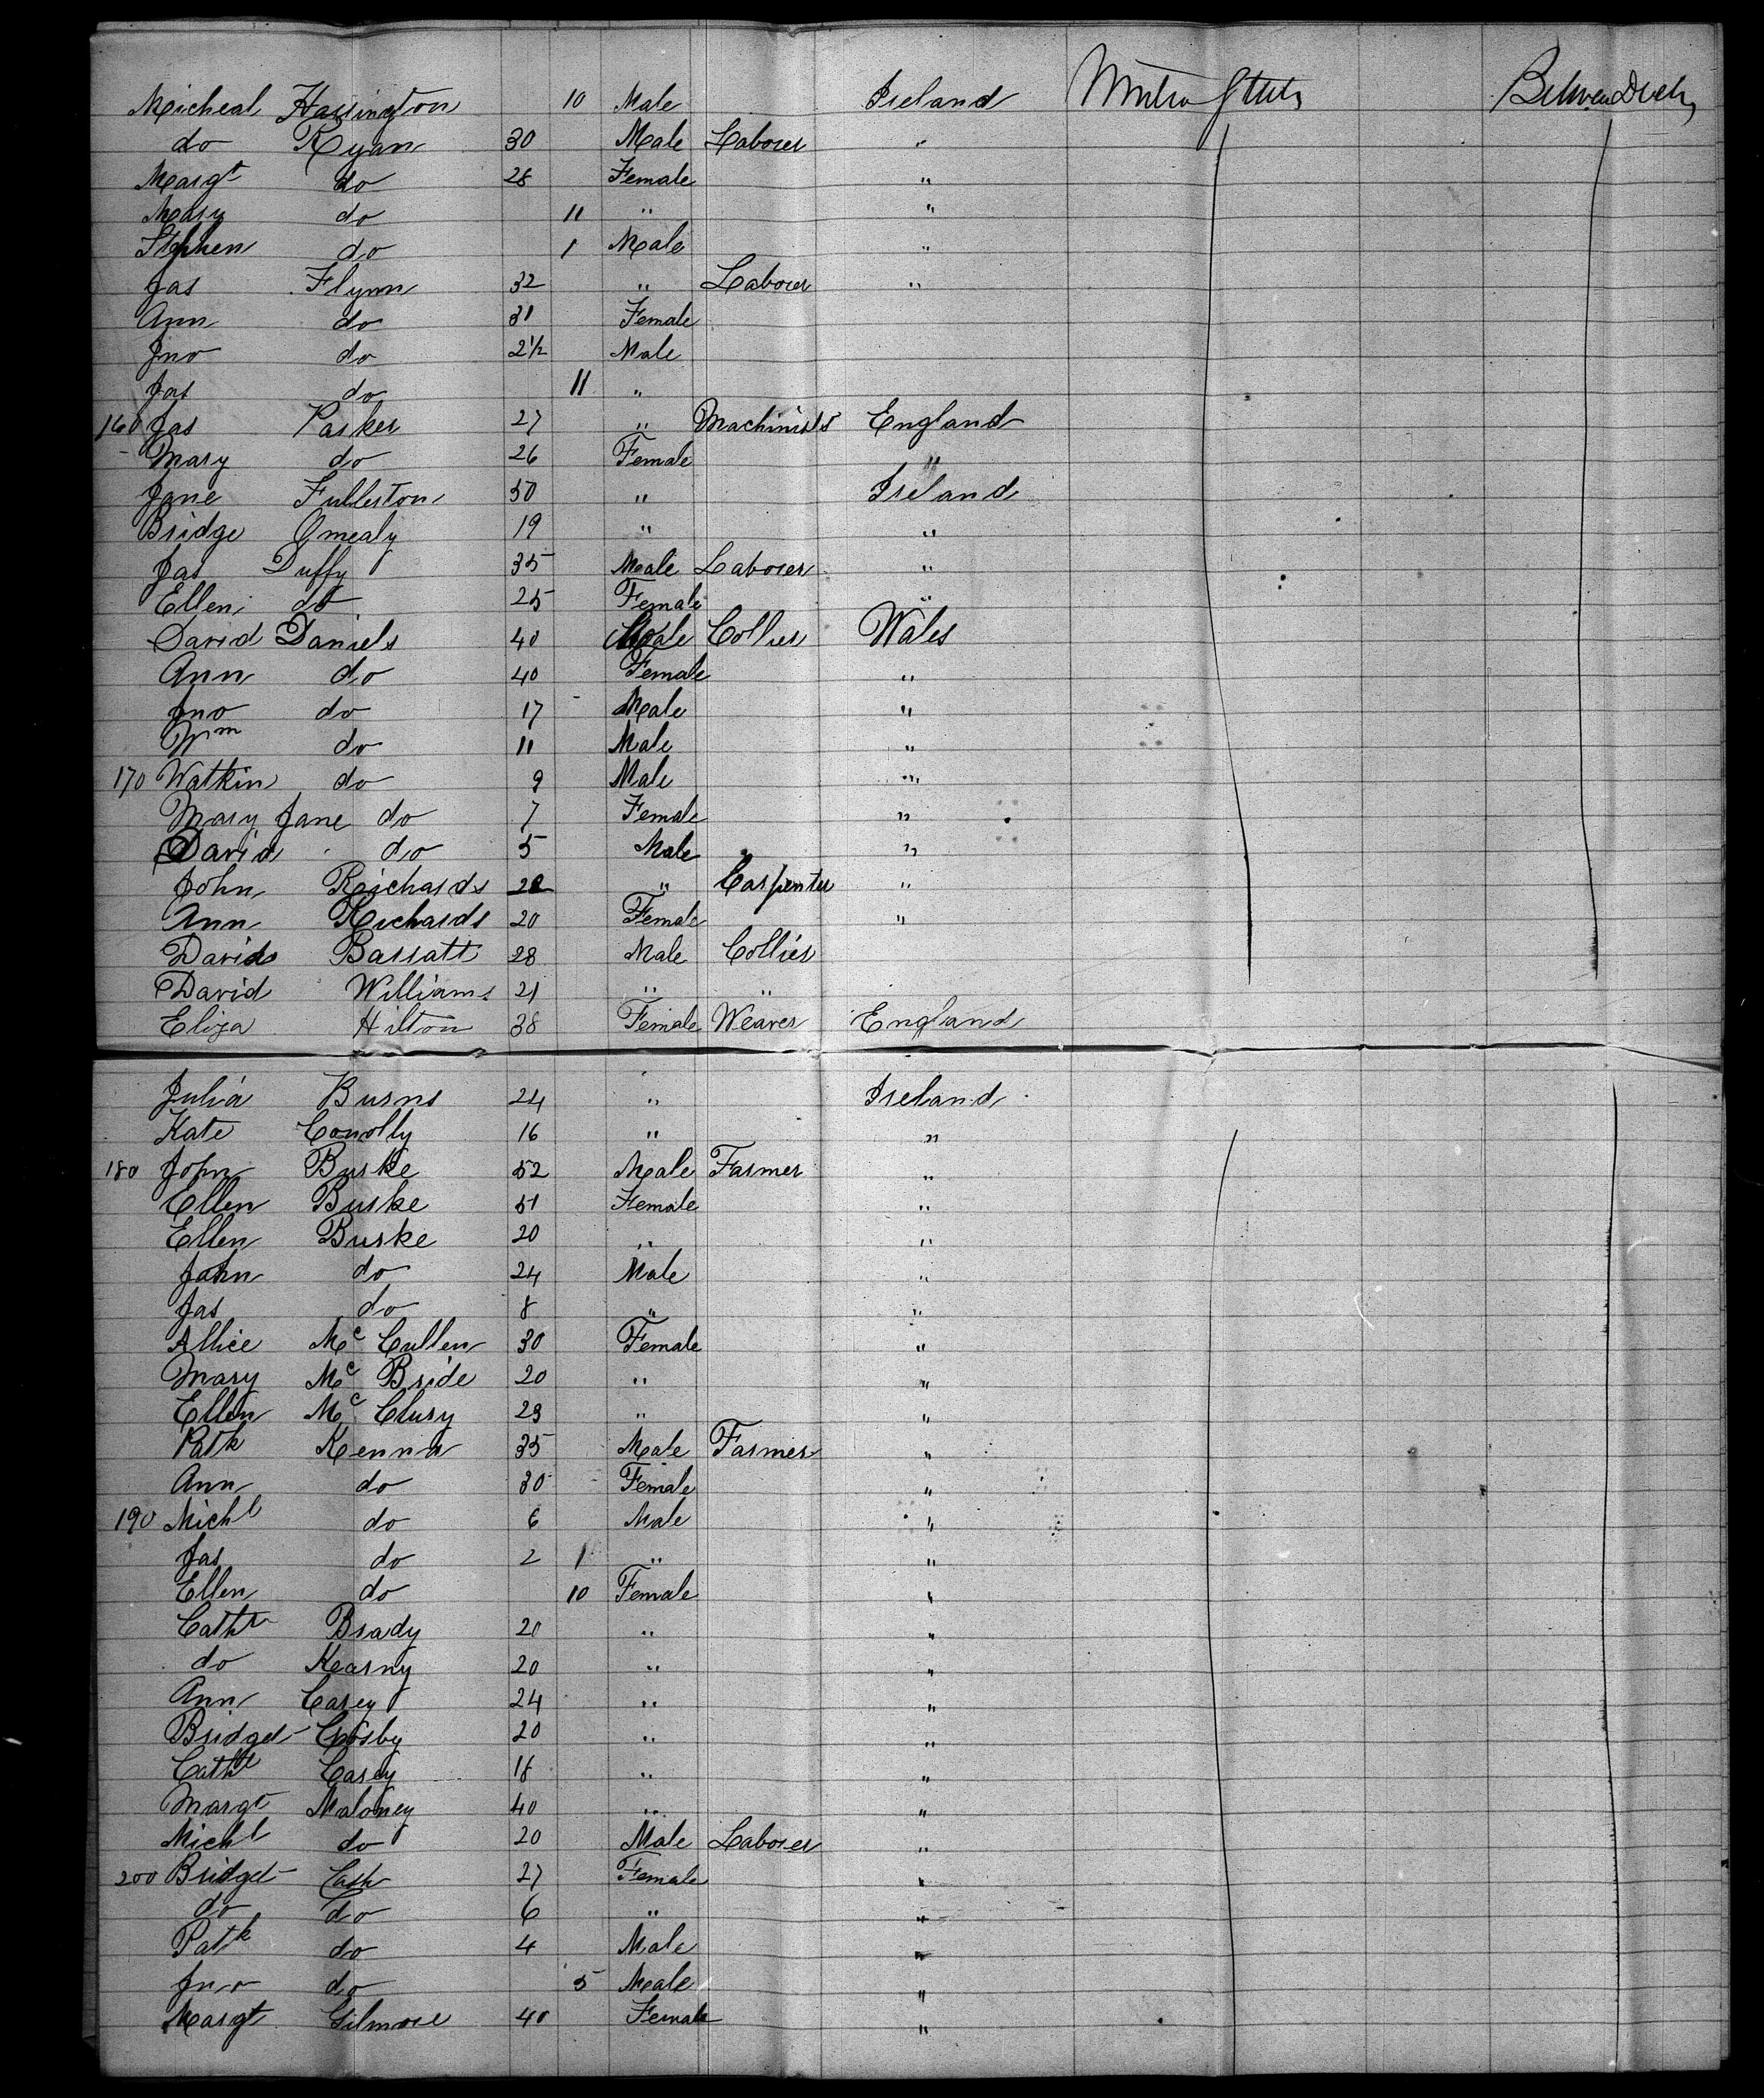 Micheal Harrington 10 Male Ireland United States Between Decks
do Ryan 30 Male Laborer "
Margt do 28 Female "
Mary do 11 " "
Stephen do 1 Male "
Jas Flynn 32 " Laborer "
Ann do 31 Female
Jno do 2½ Male
Jas do 11 "
160 Jas Parker 27 " Machinists England
Mary do 26 Female "
Jane Fullerton 50 " Ireland
Bridge Omealy 19 " "
Jas Duffy 35 Male Laborer "
Ellen do 25 Female "
David Daniels 40 Male Collier Wales
Ann do 40 Female "
Jno do 17 Male "
Wm do 11 Male "
170 Watkin do 9 Male "
Mary Jane do 7 Female "
David do 5 Male "
John Richards 22 " Carpenter "
Ann Richards 20 Female "
David Bassatt 28 Male Collier
David Williams 21 " "
Eliza Hilton 38 Female Weaver England
Julia Burns 24 " Ireland
Kate Conolly 16 " "
180 John Burke 52 Male Farmer "
Ellen Burke 51 Female "
Ellen Burke 20 " "
John do 24 Male "
Jas do 8 " "
Allice Mc Cullen 30 Female "
Mary Mc Bride 20 " "
Ellen Mc Clury 23 " "
Patk Kenna 35 Male Farmer "
Ann do 30 Female "
190 Michl do 6 Male "
Jas do 2 1 " "
Ellen do 10 Female "
Cathr Brady 20 " "
do Kearny 20 " "
Ann Casey 24 " "
Bridget Crosby 20 " "
Cathe Casey 18 " "
Margt Maloney 40 " "
Michl do 20 Male Laborer "
200 Bridget Cash 27 Female "
do do 6 " "
Patk do 4 Male "
Jno do 5 Male "
Margt Gilmore 40 Female "